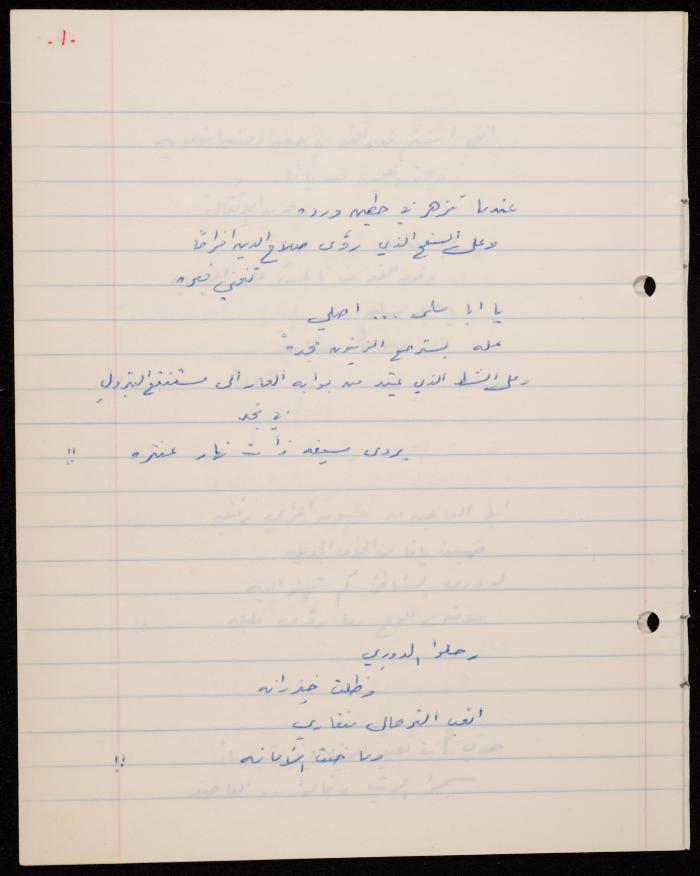 .١.
عندما تزهر في حطين ورده
وعلى السفح الذي روّى صلاح الدين افراحًا
تغني قبره
يا ابا سلمى ... اصلي
عله يسترجع الزيتون مجده
وعلى الشط الذي يمتد من بوابه الغار الى مستنقع البترول
في نجد
يروي سيفه ذات نهار عنتره !!
رحلوا الدوري
وظلت خيزرانه
اتعب الترحال منقاري
وما خنت الامانه !!